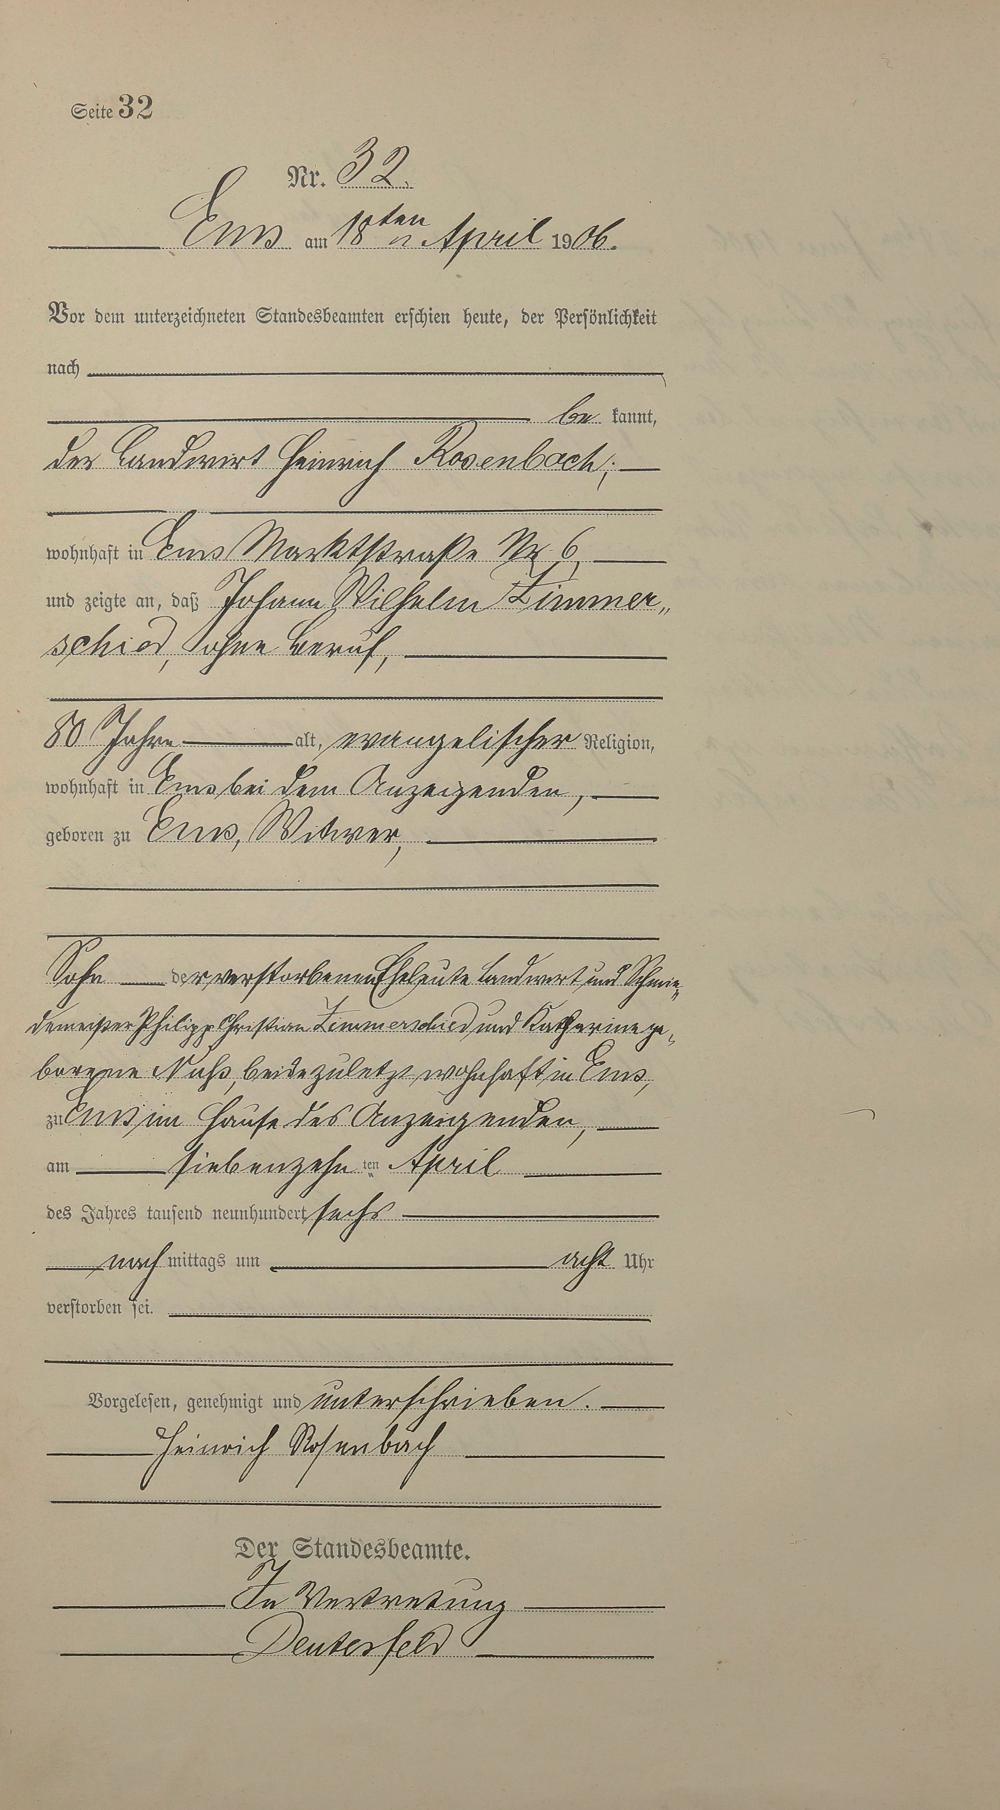 Seite 32
Nr. 32.
Ems am 18ten April 1906.
Vor dem unterzeichneten Standesbeamten erschien heute, der Persönlichkeit
nach
be kannt,
der Landwirt Heinrich Rosenbach,
wohnhaft in Ems Marktstraße Nr 6
und zeigte an, daß Johann Wilhelm Zimmer„
schied, ohne Beruf,
80 Jahre alt, evangelischer Religion,
wohnhaft in Ems bei dem Anzeigenden,
geboren zu Ems, Witwer,
Sohn der verstorbenen Eheleute Landwirt und Schmie„
demeister Philipp Christian Zimmerschied und Katharine ge„
borene Nuhs, beide zuletzt wohnhaft in Ems,
zu Ems im Hause des Anzeigenden,
am siebenzehnten April
des Jahres tausend neunhundert sechs
nach mittags um acht Uhr
verstorben sei.
Vorgelesen, genehmigt und unterschrieben.
Heinrich Rosenbach
Der Standesbeamte.
In Vertretung
Deutesfeld